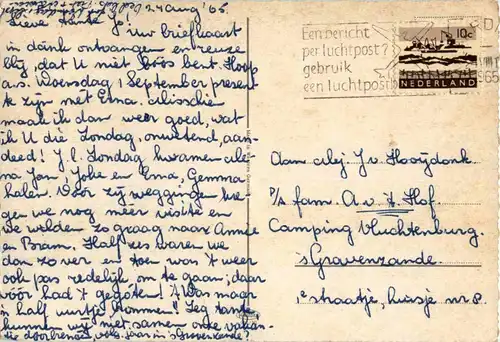 24 aug. '65.
Lieve tante Jo! Uw briefkaart
in dank ontvangen en reuze
blij, dat U niet boos bent. Hoop
a.s. Woensdag 1 September present
te zijn met Erna. Misschien
maak ik dan weer goed, wat
ik U die Zondag, onwetend, aan-
deed! J.l. Zondag kwamen
Jan, Joke en Erna, Gemma
halen. Voor zij weggingen kre-
gen we nog méér visite en
we wilden zo graag naar Annie
en Bram. Half zes waren we
dan zo ver en toen was 't weer
ook pas redelijk om te gaan; daar
vóór had 't gegoten! 't Was maar
'n half uurtje, hommer! Zeg tante
kunnen wij niet samen onze vakan-
tie doorbrengen, volg. jaar in 's Gravenzande?
Een bericht
per luchtpost?
gebruik
een luchtpostb
10c
NEDERLAND
Aan Mej. J. v. Hooijdonk
p/a fam. A. v. 't Hof.
Camping Vluchtenburg.
's Gravenzande.
1e straatje, huisje nr 8.